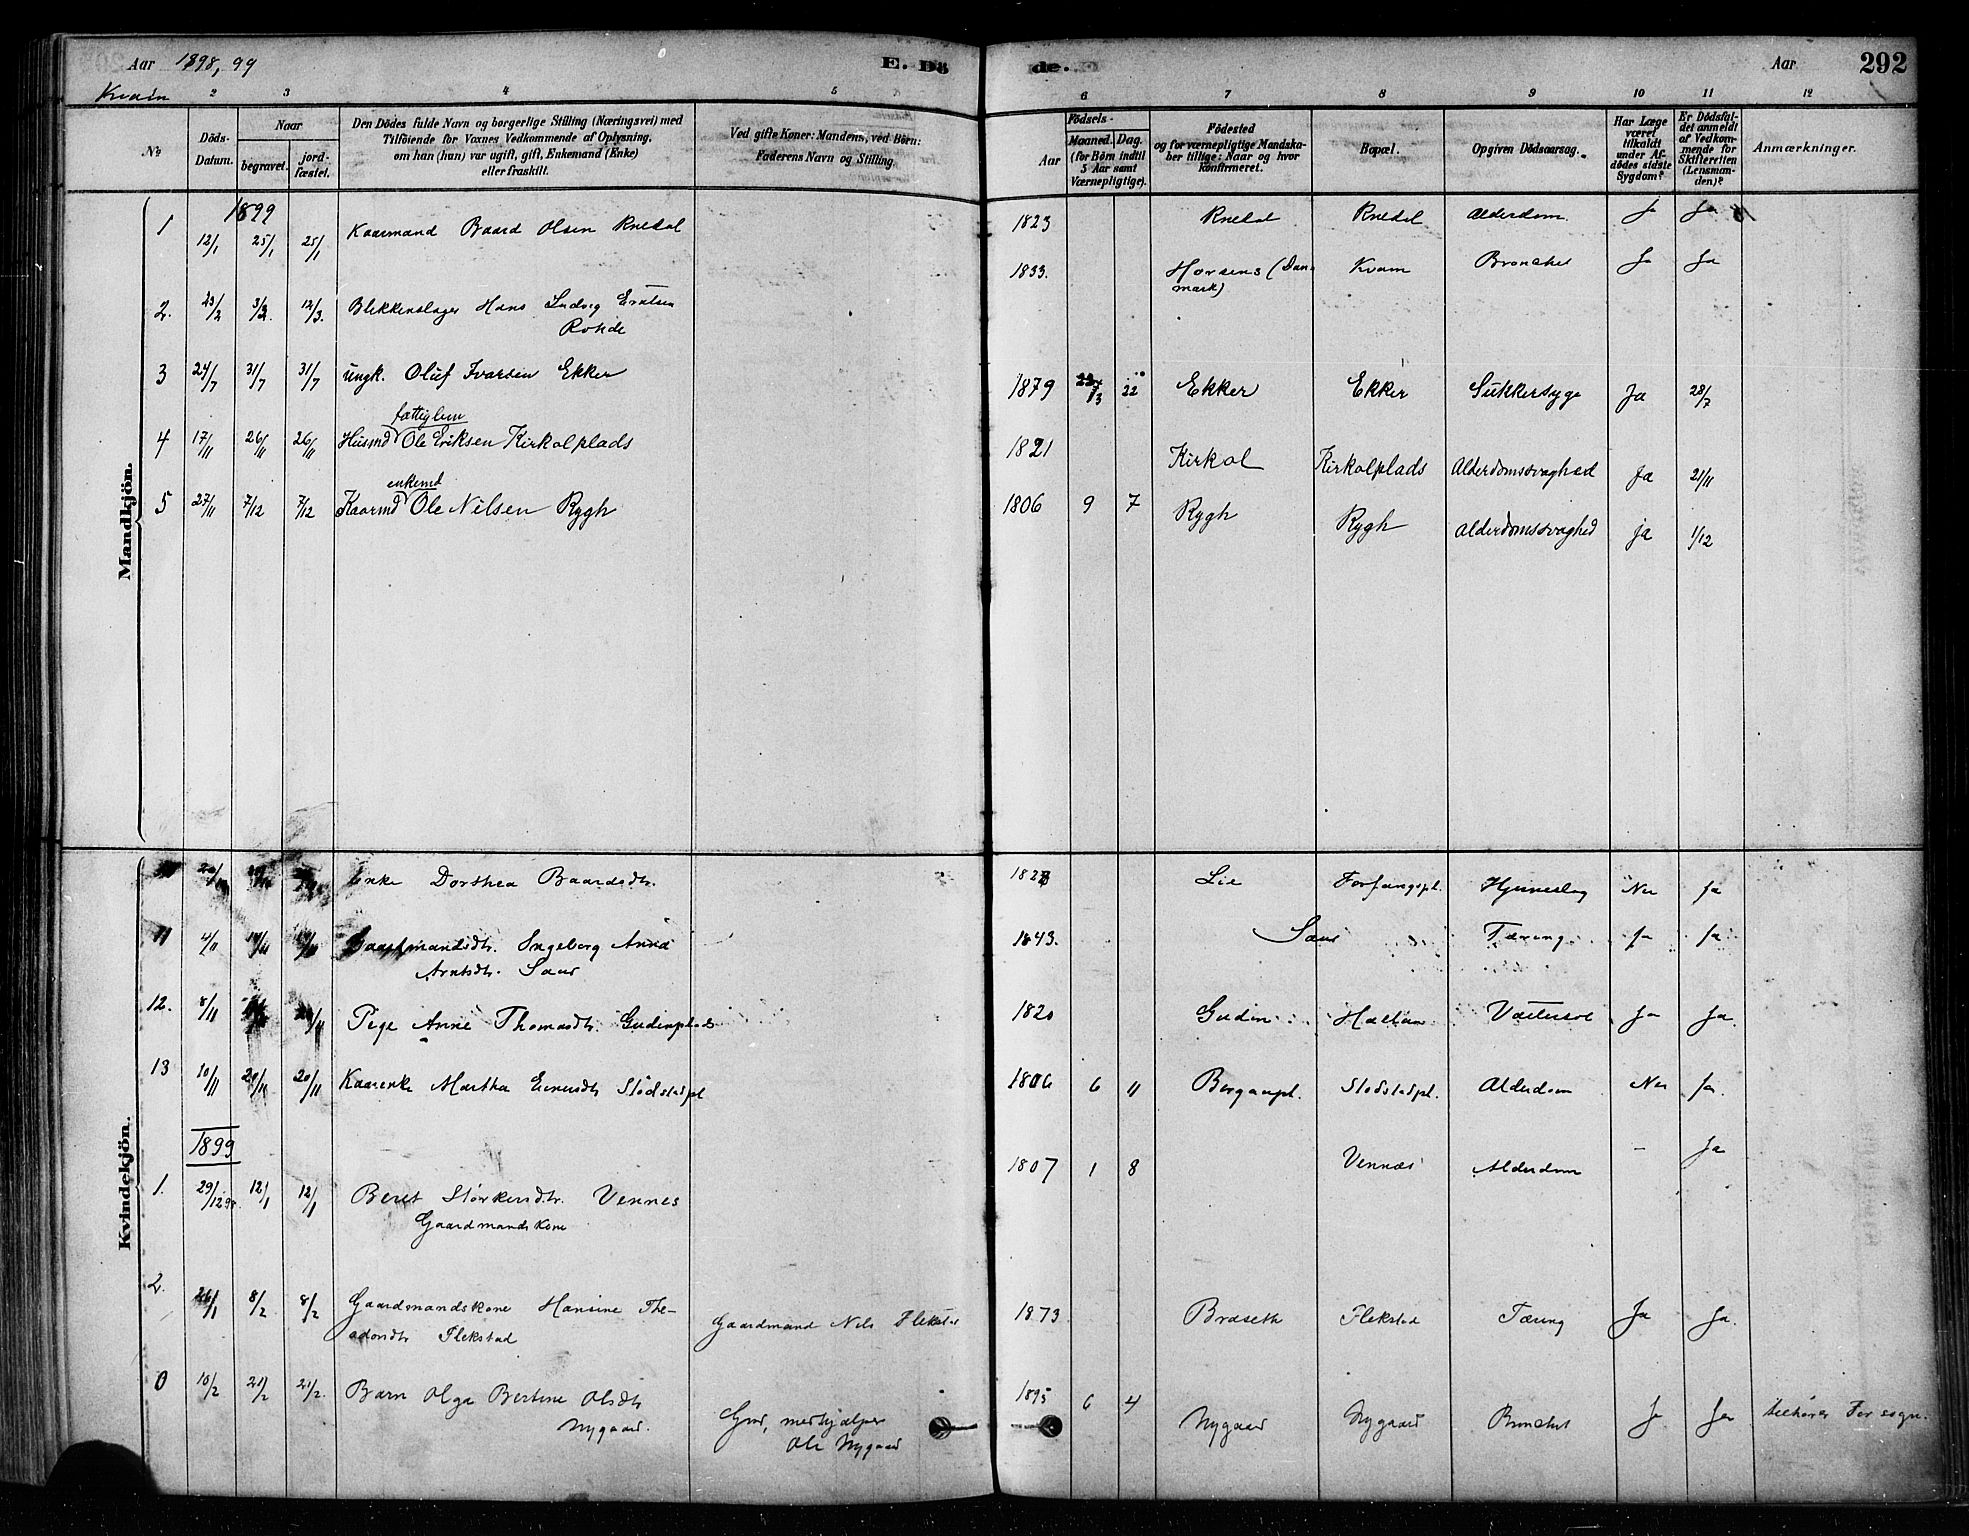 Aar 1898, 99 E. Dö de. Aar 292
Kvam
2 3 4 5 6 7 8 9 10 11 12
No
Döds-Datum.
Naar
begravet.
jordfæstet.
Den Dödes fulde Navn og borgerlige Stilling (Næringsvei) med
Tilföiende for Voxnes Vedkommende af Oplysning,
om han (hun) var ugift, gift, Enkemand (Enke)
eller fraskilt.
Ved gifte Koner: Mandens, ved Börn:
Faderens Navn og Stilling.
Födsels-
Aar
Maaned. Dag.
(for Börn indtil
5 Aar samt
Værnepligtige).
Födested
og for værnepligtige Mandskaber tillige: Naar og hvor
konfirmeret.
Bopæl.
Opgiven Dödsaarsag.
Har Læge
været
tilkaldt
under Afdödes sidste
Sygdom?
Er Dödsfaldet anmeldt
af Vedkommende for
Skifteretten
(Lensmanden)?
Anmærkninger.
Mandkjön.
1899
1 12/1 25/1 25/1 Kaarmand Baard Olsen 1823 Alderdom Ja Ja
2. 23/2 12/3. Blikkenslager Hans Ludvig
Rohde 1833. Horsens (Danmark) Kvam Bronchit Ja Ja
3 24/7 31/7 31/7 Ungk. Oluf Ivarsen Ekker 1879 22 Ekker Ekker Sukkersyge Ja 28/7
fattiglem
4 17/11 26/11 26/11 Husmd Ole Eriksen Kirkolplads 1821 Kirkol Kirkolplads Alderdomssvaghed Ja 21/11
enkemd
5 27/11 7/12 7/12 Kaarmd Ole Nilsen Rygh 1806 9 7 Rygh Rygh Alderdomssvaghed ja 1/12
Kvindekjön.
Enke Dorthea Baardsdtr. Lie Forfangspl. Hjerneslag Nei Ja
11 4/11 Gaardmandsdtr. Ingeborg Anna
Arntsdtr. Saur 1843. Saur Tæring Ja Ja
12. 8/11 Pige Anne Thomasdtr. Gudinplads 1820 Gudin Vattersot Ja Ja.
13 10/11 20/11 20/11 Kaarenke Martha Stodstadpl 1806 6 11 Bergaapl. Stodstadpl. Alderdom Nei Ja.
1899
1. 29/12 98. 12/1 12/1 Beret Størkersdtr. Vennes
Gaardmandskone 1807 1 8 Vennæs Alderdom - Ja
2. 26/1 8/2 8/2 Gaardmandskone Hansine Theodorsdtr Flekstad Gaardmand Nils Flekstad 1873 Braseth Flekstad Tæring Ja Ja.
0 10/2 21/2 21/2. Barn Olga Bertine Olsdtr
Nygaard. Gmd, medhjælper
Ole Nygaard 1895 6 4 Nygaard Nygaard Bronchit Ja Ja tilhører For sogn.